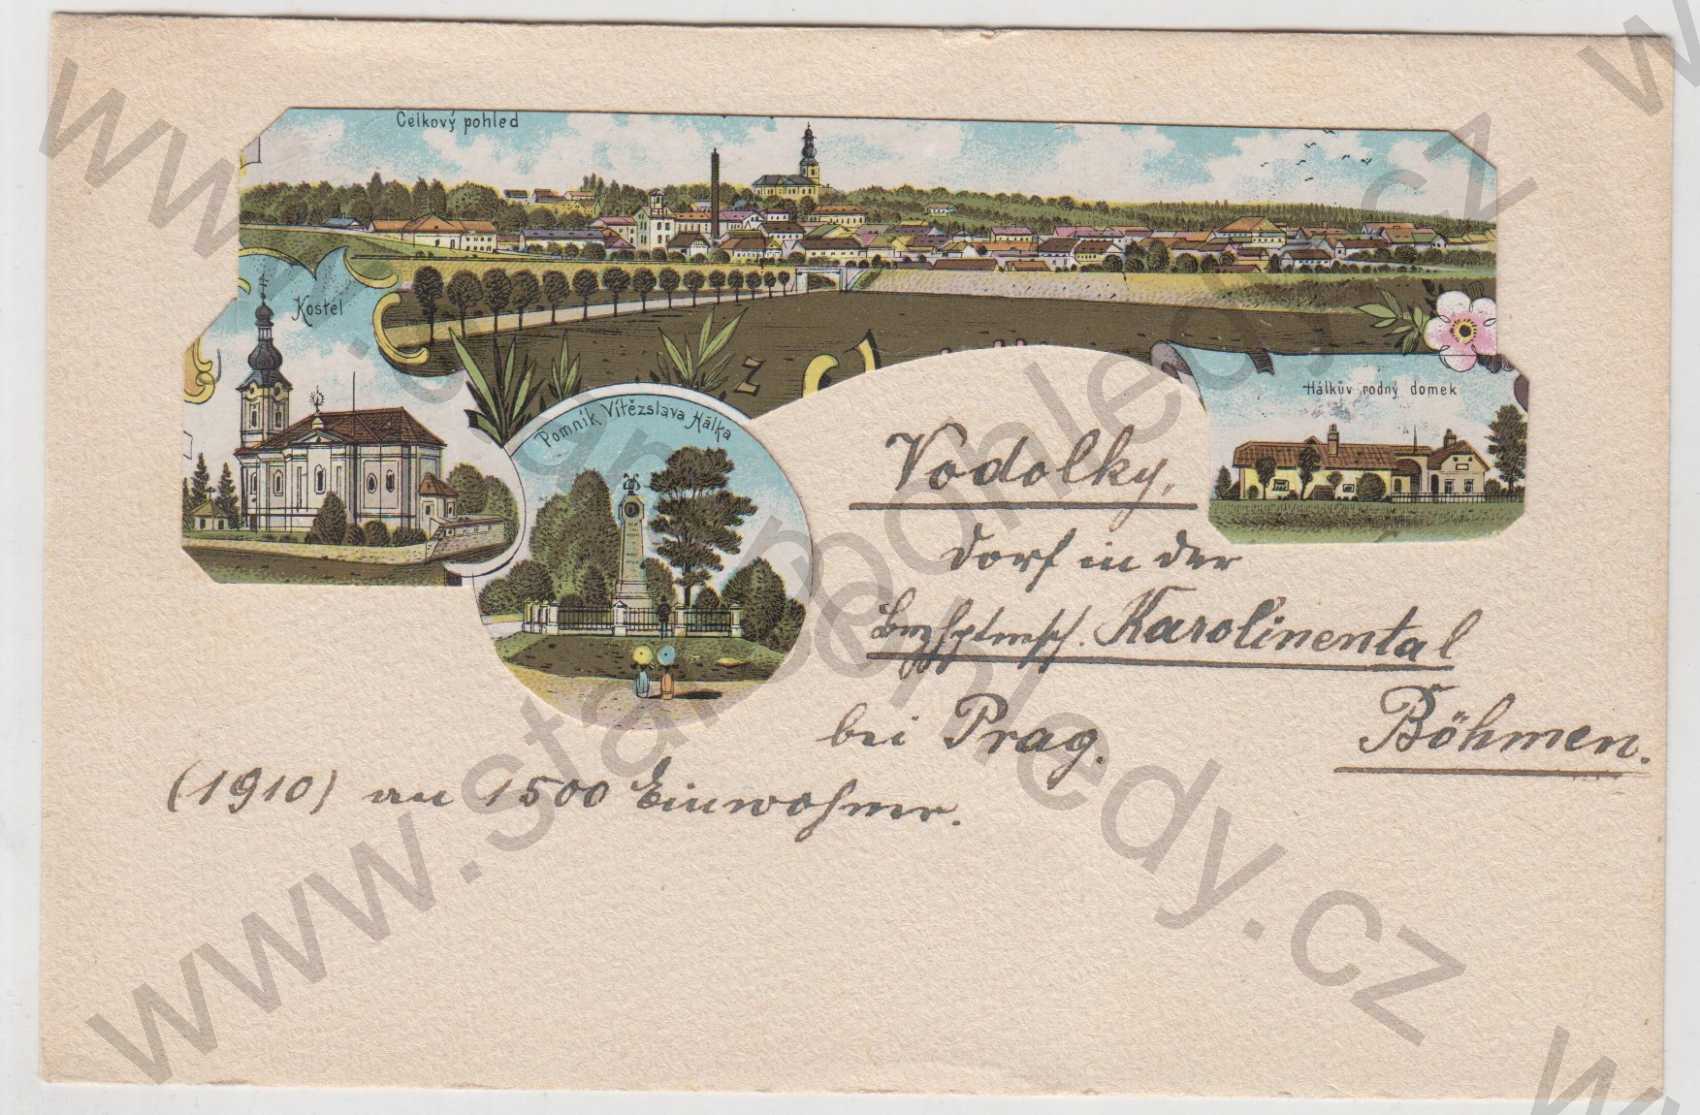 Celkový pohled
Kostel
Pomník Vítězslava Hálka
z
Hálkův rodný domek
Vodolky,
Dorf in der
Bezhptmsch. Karolinental
bei Prag. Böhmen.
(1910) an 1500 Einwohner.
www.starepohledy.cz
www.starepohledy.cz